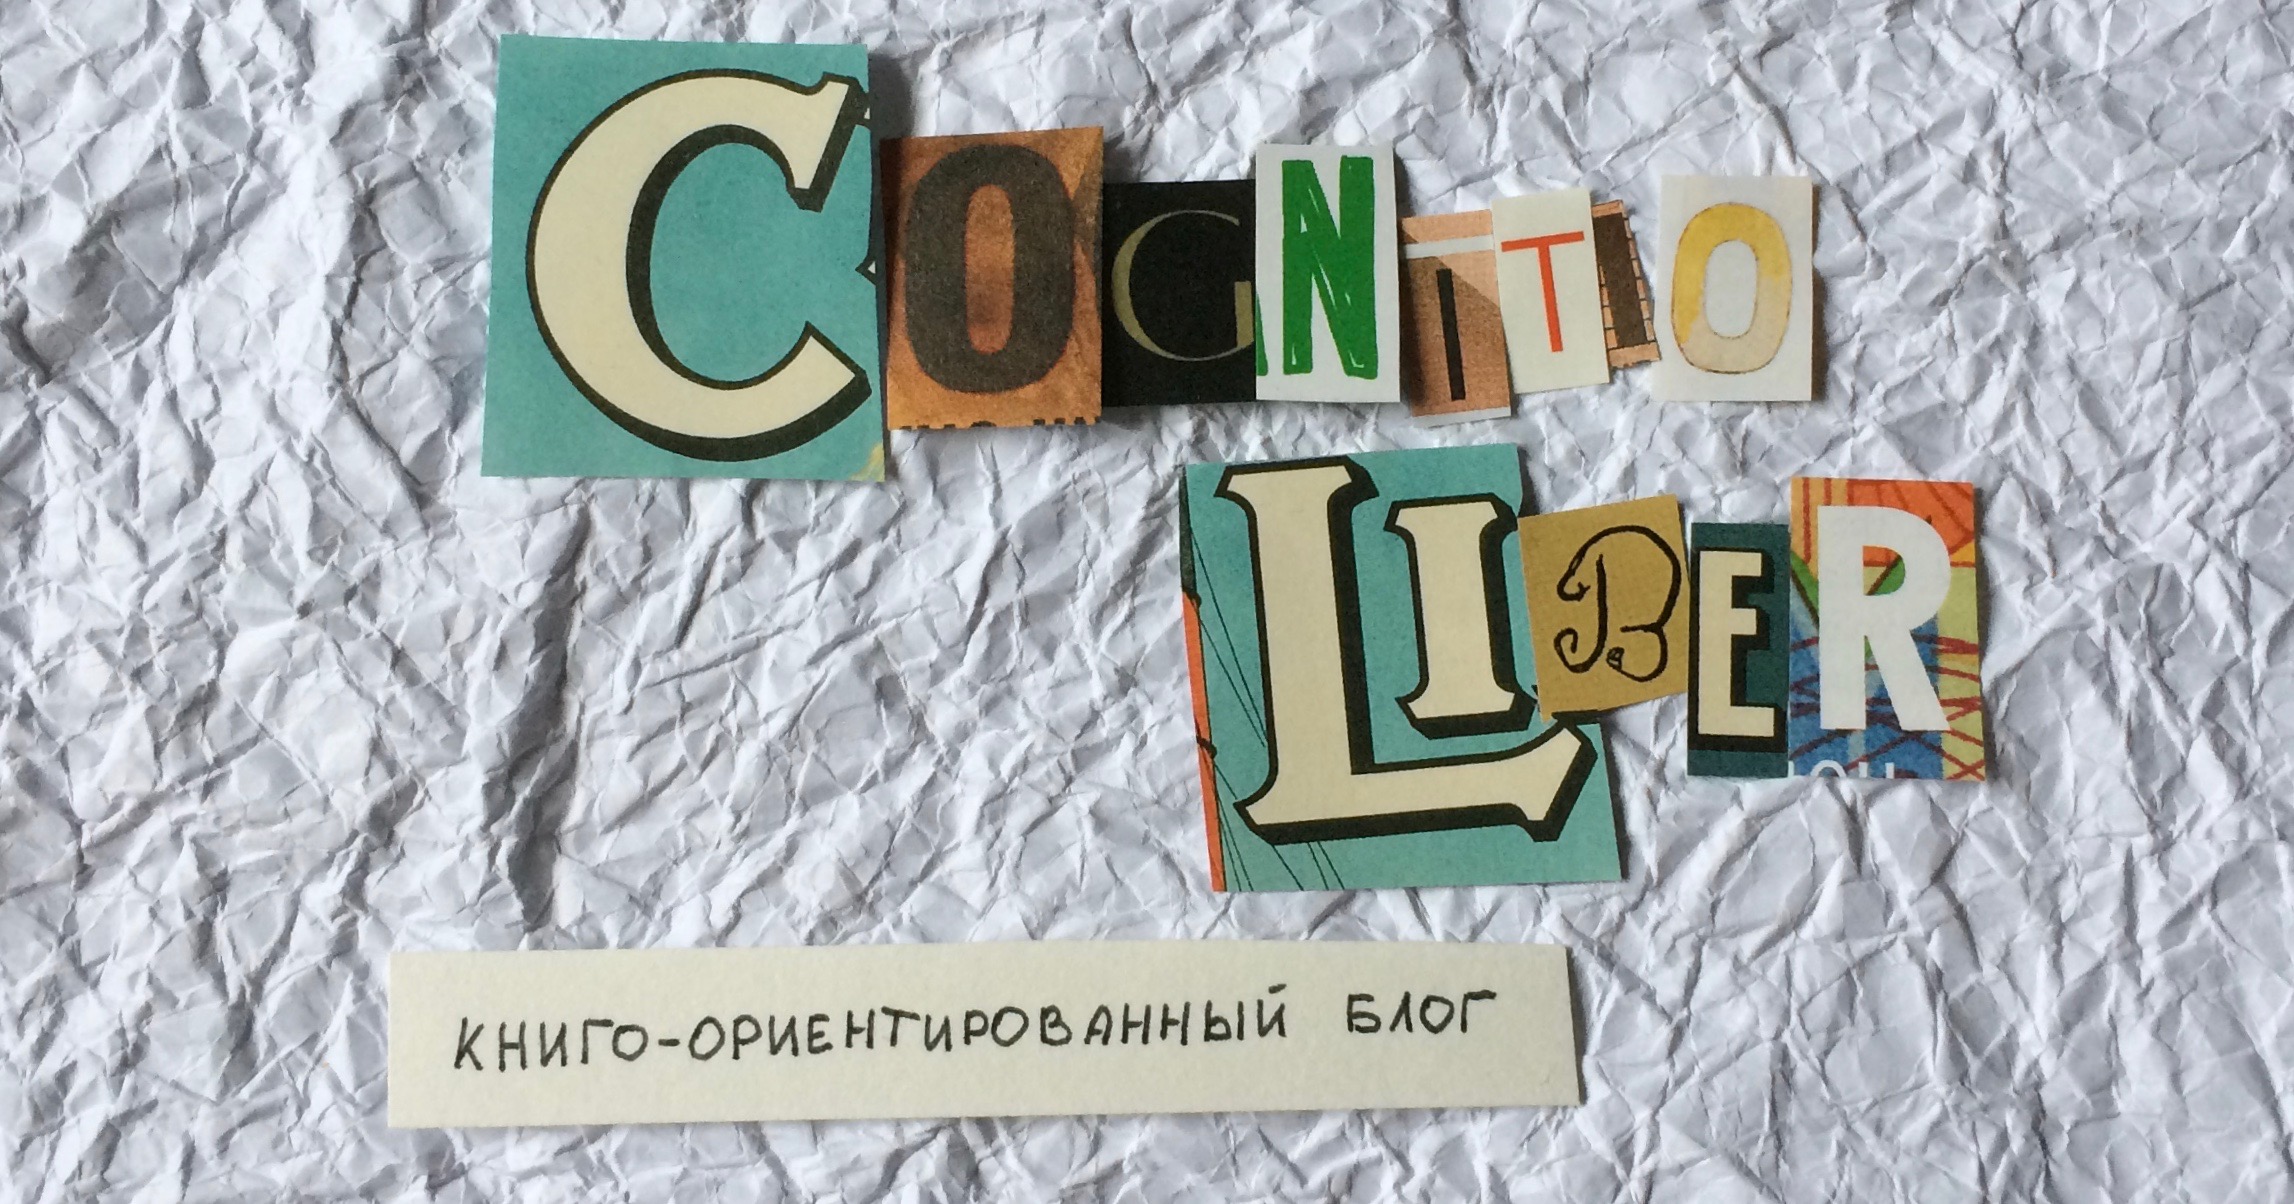 COGNITO
LIBER
КНИГО-ОРИЕНТИРОВАННЫЙ БЛОГ